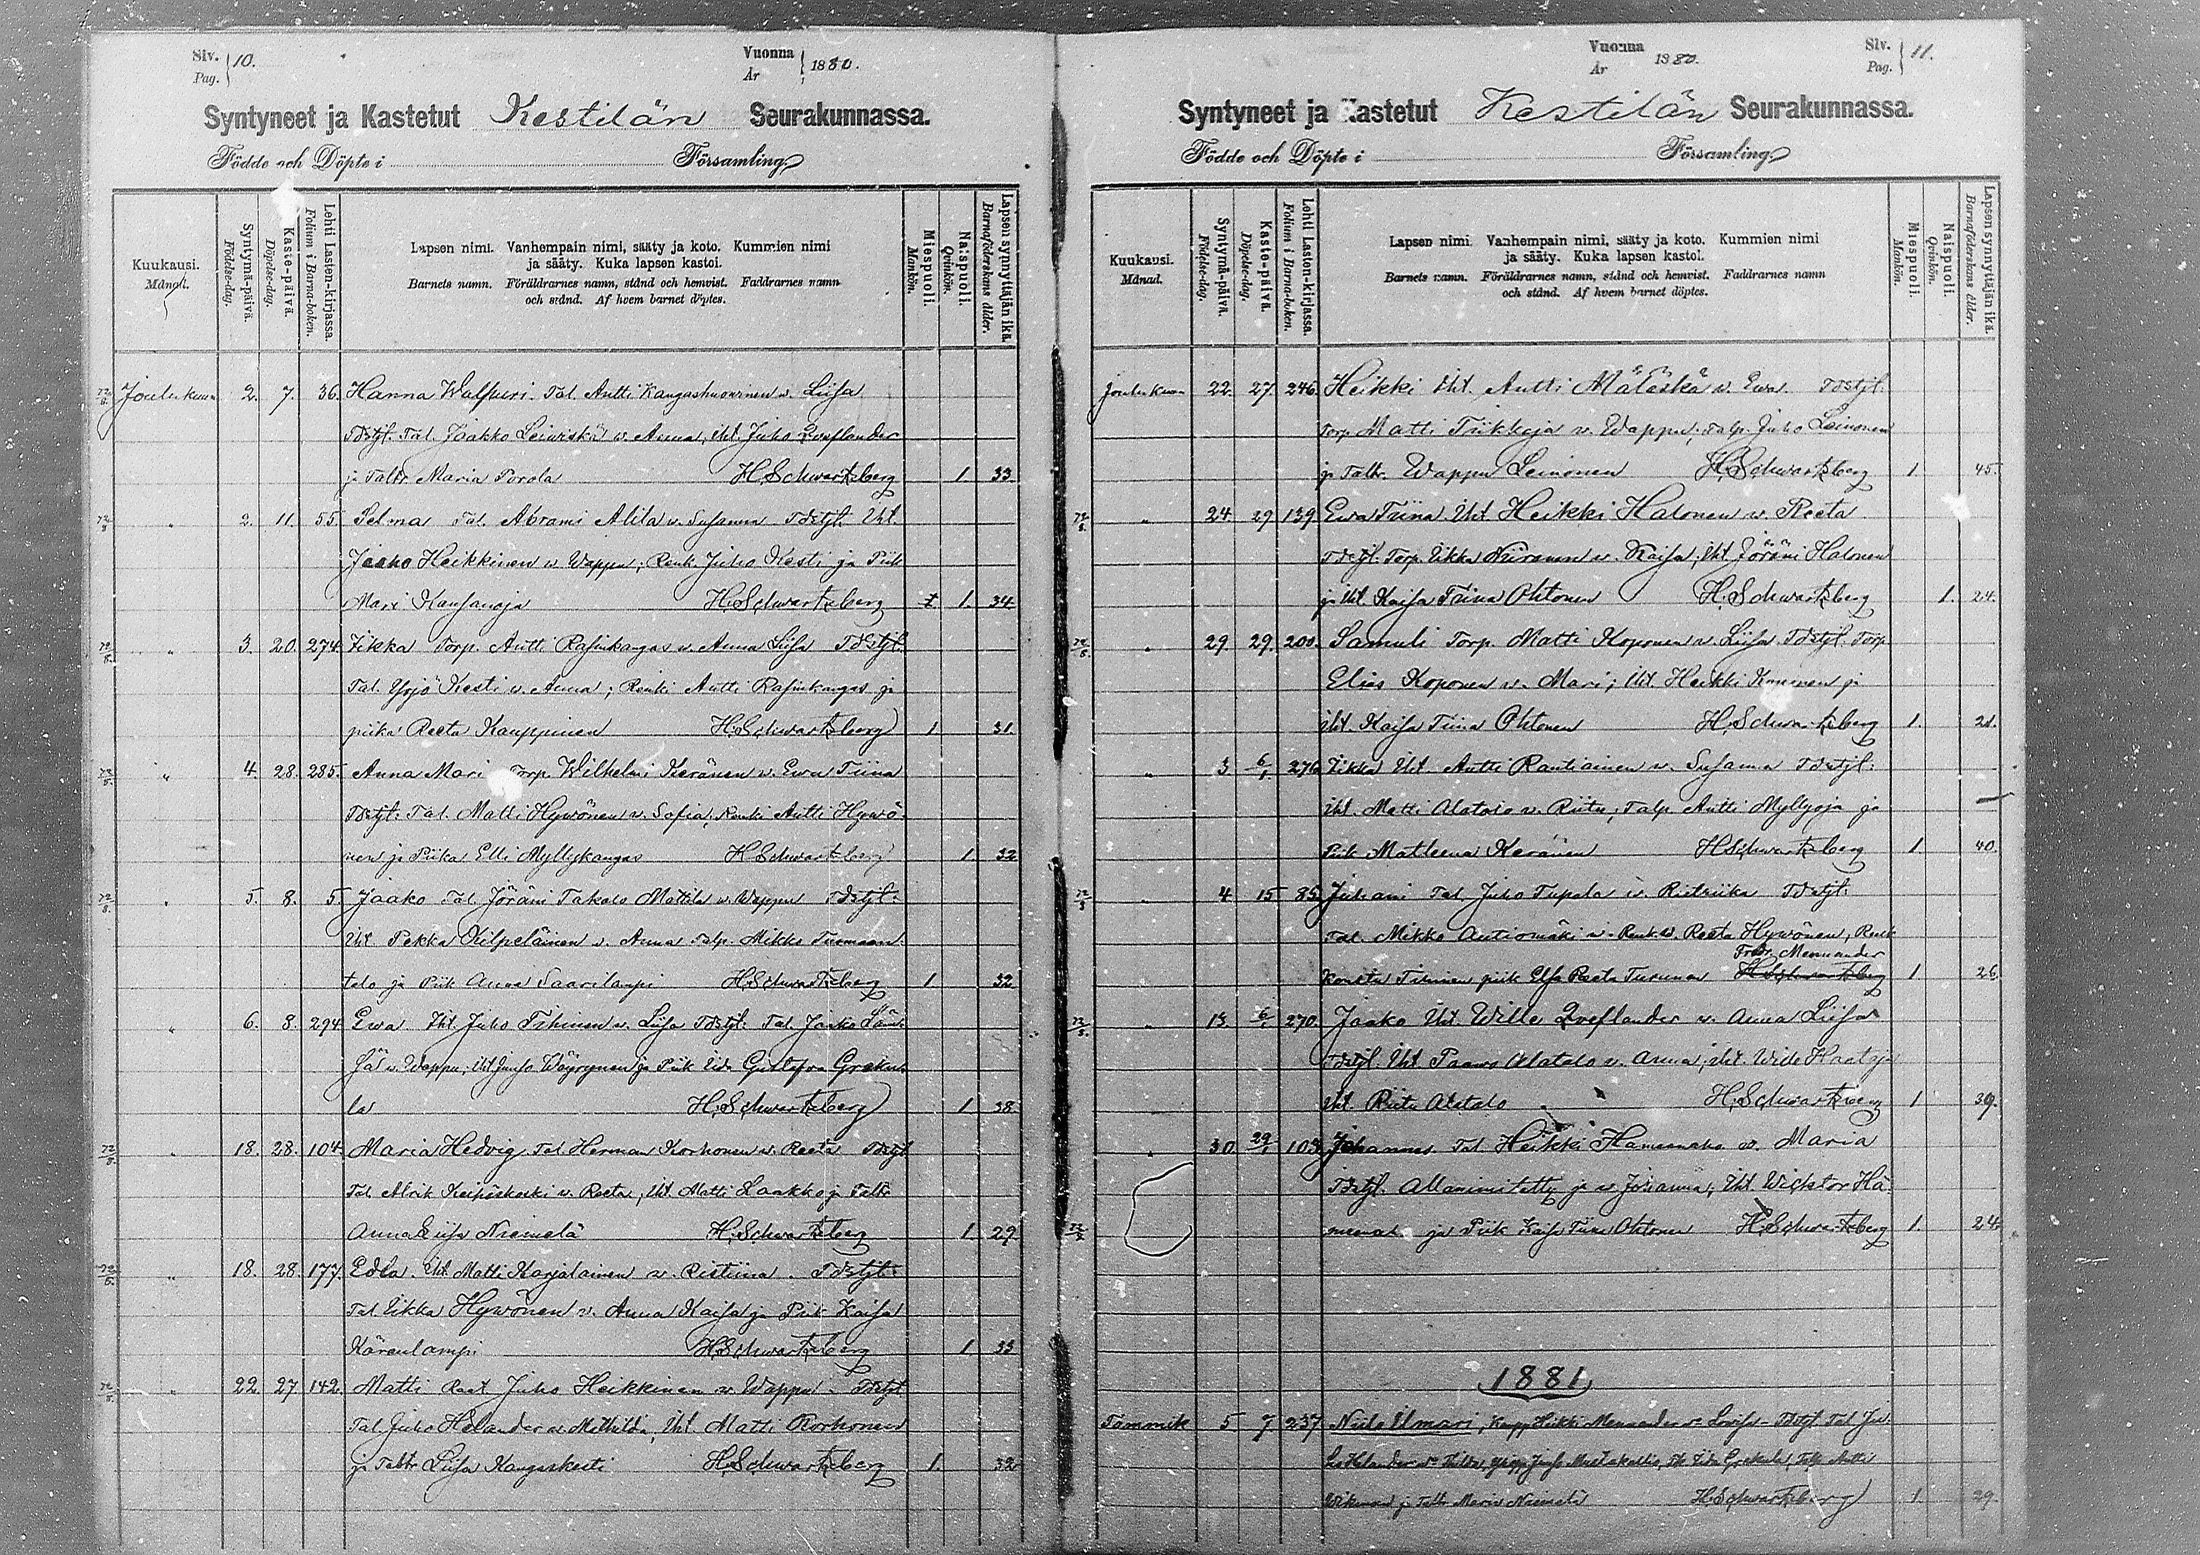 Siv. Pag. 10.
Vuonna År 1880.
Syntyneet ja Kastetut Kestilän Seurakunnassa.
Födde och Döpte i Församling.
Kuukausi. Månad.
Syntymä-päivä. Födelse-dag.
Kaste-päivä. Döpelse-dag.
Lehti Lasten-kirjassa. Folium i Barna-boken.
Lapsen nimi. Vanhempain nimi, sääty ja koto. Kummien nimi
ja sääty. Kuka lapsen kastoi.
Barnets namn. Föräldrarnes namn, stånd och hemvist. Faddrarnes namn
och stånd. Af hvem barnet döptes.
Miespuoli. Mankön.
Naispuoli. Qvinkön.
Lapsen synnyttäjän ikä. Barnaföderskans ålder.
Joulukuun 2. 7. 36. Hanna Walpuri. Tal. Antti Kangashuovinen w. Liisa
Tdstjt. Tal. Jaakko Leiviskä w. Anna, Iht. Juho Qveflander
ja Taltr Maria Porola H. Schwartzberg 1 33
" 2. 11. 55. Selma Tal. Abrami Alila w. Susanna Tdstjt. Iht.
Jaako Heikkinen w Wappu; Renk. Juho Kesti ja Piik
Mari Kansanoja H. Schwartzberg 1. 34
" 3. 20. 274. Eikka Torp. Antti Rasinkangas w. Anna Liisa Tdstjt.
Tal. Yrjö Kesti w. Anna; Renki Antti Rasinkangas ja
piika Reeta Kauppinen H. Schwartzberg 1 31.
" 4. 28. 285. Anna Mari Torp. Wilhelmi Keränen w. Ewa Tiina
Tdstjt. Tal. Matti Hywönen w. Sofia, Renki Antti Hywö-
nen ja Piika Elli Myllykangas H Schwartzberg 1 32
" 5. 8. 5. Jaako Tal. Jöräni Takalo Mattila w. Wappu Tdstjt.
Iht Pekka Kilpeläinen w. Anna Talp. Mikko Turmaan
talo ja Piik Anna Saarilampi H. Schwartzberg 1 32
" 6. 8. 294. Ewa Iht. Juho Tihinen w. Liisa Tdstjt. Tal. Jaako Län-
sä w. Wappu, Iht Juho Wäyrynen ja Piik Iida Gustafva Greku-
la H. Schwartzberg 1 38
" 18. 28. 104. Maria Hedvig Tal Herman Korhonen w. Reeta Tdstjt
Tal Alrik Karppinen w. Reeta, Iht Matti Laakko ja Taltr
Anna Liisa Niemelä H. Schwartzberg 1 29
" 18. 28. 177. Edla. Iht Matti Karjalainen w. Ristiina. Tdstjt.
Tal Eikka Hywönen w. Anna Kaisa ja Piik Kaisa
Kärenlampi H. Schwartzberg 1 33
" 22 27 142 Matti Juho Heikkinen w Wappu. Tdstjt
Tal. Juho Helander w. Mathilda, Iht Matti Korhonen
ja Taltr Liisa Kangaskesti H. Schwartzberg 1. 32
Vuonna År 1880.
Siv. Pag. 11.
Syntyneet ja Kastetut Kestilän Seurakunnassa.
Födde och Döpte i Församling.
Kuukausi. Månad.
Syntymä-päivä. Födelse-dag.
Kaste-päivä. Döpelse-dag.
Lehti Lasten-kirjassa. Folium i Barna-boken.
Lapsen nimi. Vanhempain nimi, sääty ja koto. Kummien nimi
ja sääty. Kuka lapsen kastoi.
Barnets namn. Föräldrarnes namn, stånd och hemvist. Faddrarnes namn
och stånd. Af hvem barnet döptes.
Miespuoli. Mankön.
Naispuoli. Qvinkön.
Lapsen synnyttäjän ikä. Barnaföderskans ålder.
Joulukuun 22. 27. 246. Heikki Iht. Antti Mäläskä w. Ewa. Tdstjt.
Torp Matti Tikkaja w. Wappu; Talp. Juho Leinonen
ja Taltr. Wappu Leinonen H. Schwartzberg 1. 45.
" 24. 29 139 Ewa Tiina Iht Heikki Halonen w. Reeta
Tdstjt. Torp. Eikka Niiranen w. Kaisa; Iht. Jöräni Halonen
ja Iht. Kaisa Tiina Ohtonen H. Schwartzberg 1. 24.
" 29. 29. 200. Samuli Torp. Matti Koponen w. Liisa Tdstjt. Torp
Elias Koponen w. Mari; Iht. Heikki Kononen ja
Iht. Kaisa Tiina Ohtonen H. Schwartzberg 1. 21.
" 3 6/1 276 Eikka Iht. Antti Rautiainen w. Susanna Tdstjt.
Iht. Matti Alatalo w. Riitu; Talp Antti Myllyoja ja
Piik Matleena Keränen H Schwartzberg 1. 40.
" 4 15 85. Juhani Tal Juho Tupala w. Rietriika Tdstjt.
Tal. Mikko Autiomäki w. Renk w. Reeta Hywönen, Renk
Fredr. Mennander
Konsta Tihinen piik Elsa Reeta Turunen H Schwartzberg 1 26.
" 13. 6/1 270. Jaako Iht. Wille Qveflander w. Anna Liisa
Tdstjt. Iht Paawo Alatalo w. Anna, Iht. Wide Kaatoja
Iht. Riitu Alatalo H. Schwartzberg 1 39.
" 30 29/1 103. Johannes Tal. Heikki Hamunaho w. Maria
Tdstjt. w. Johanna; Iht Wicktor Hä-
ja Piik Kaisa Tiina Ohtonen H. Schwartzberg 1. 24
1881
Tammik 5. 7 237 Niilo Ilmari, Kaupp Heikki Mennander w Lowisa - Tdstjt. Tal Ju-
ho Helander w Hilda, Juho Mustakallio, Iida Grekula, Talp Antti
Wikman ja Taltr Maria Niemelä H. Schwartzberg 1. 29.